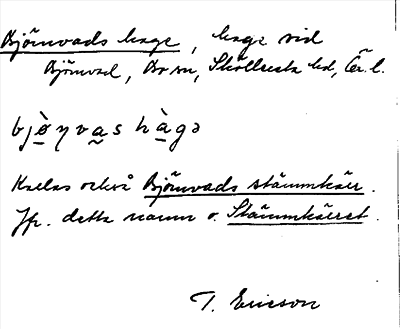 Björnvads hage, hage vid
Björnvad, Bo sn, Sköllersta hd, Ör. l.
bjø̀ŋvas hàgə
Kallas också Björnvads stämmkärr.
Jfr. detta namn o. Stämmkärret.
T. Ericson